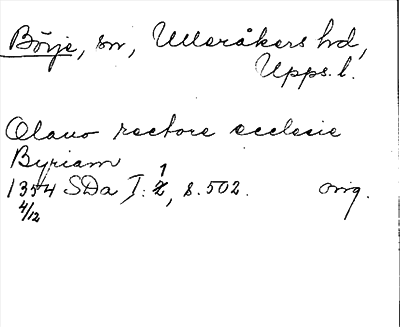 Börje, sn, Ulleråkers hd,
Upps. l.
Olauo rectore ecclesie
Byriam
1354 SDa I: 1, s. 502. orig.
4/12